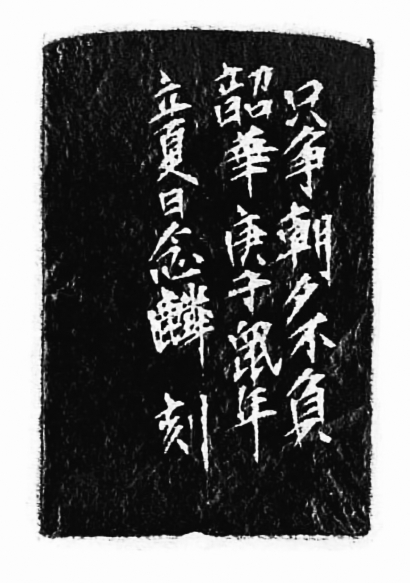 只争朝夕不負
韶華庚子鼠年
立夏日念麟刻